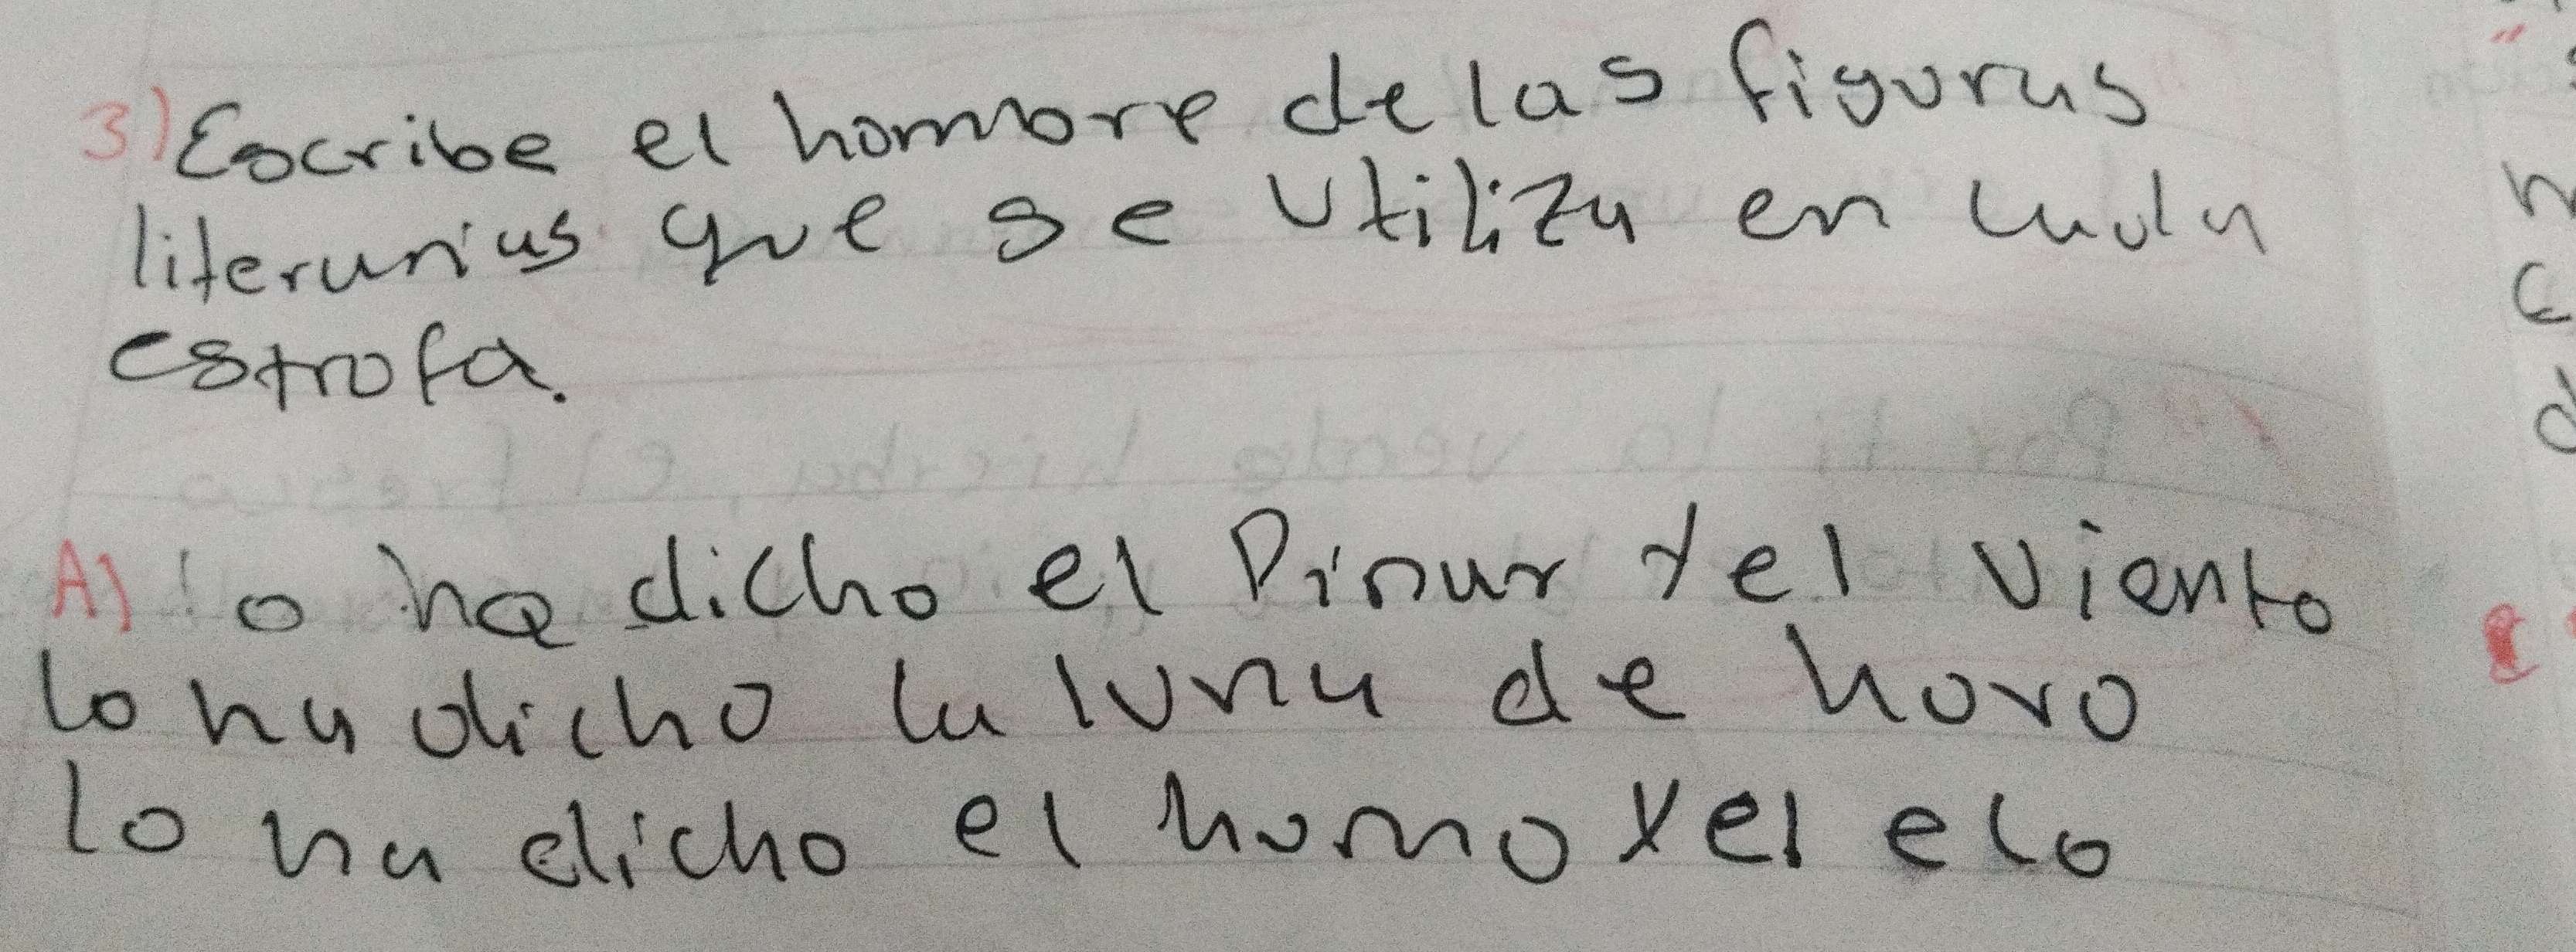 3) Escribe el hombre de las figuras
literarias que se utiliza en cada
estrofa.
A) lo ha dicho el Pinar y el viento
lo ha dicho la luna de horo
lo ha dicho el humo y el eco